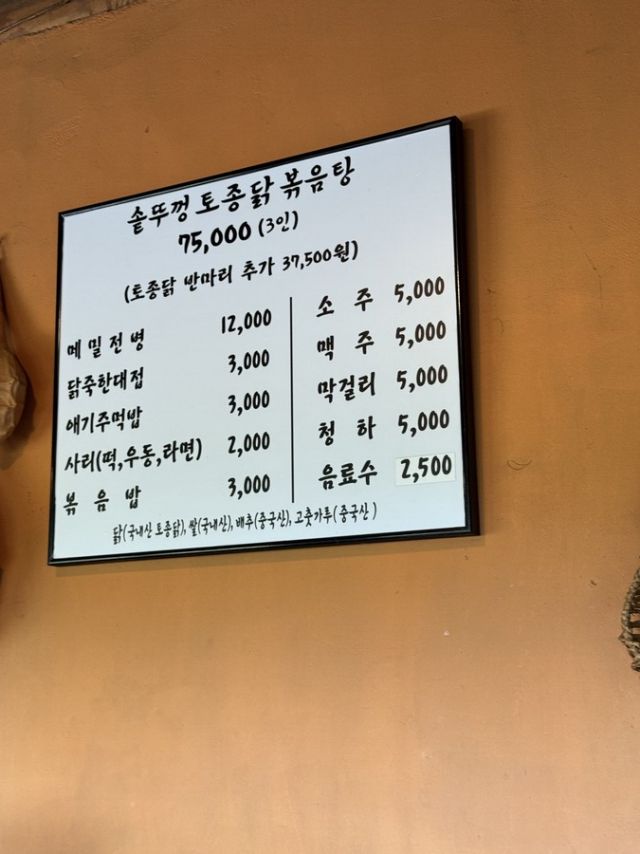 솥뚜껑 토종닭 볶음탕
75,000 (3인)
(토종닭 반마리 추가 37,500원)
메밀전병 12,000
닭죽한대접 3,000
애기주먹밥 3,000
사리(떡,우동,라면) 2,000
볶음밥 3,000
소주 5,000
맥주 5,000
막걸리 5,000
청하 5,000
음료수 2,500
닭(국내산 토종닭), 쌀(국내산), 배추(중국산), 고춧가루(중국산)